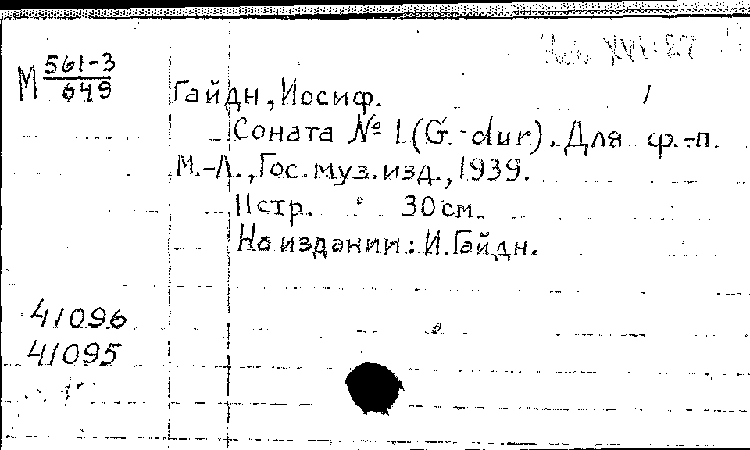 М 561-3
649
Гайдн, Иосиф.
Соната № 1 (G.-dur). Для ф.-п.
М.-Л., Гос. муз. изд., 1939.
11 стр. 30 см.
На издании: И. Гайдн.
41096
41095